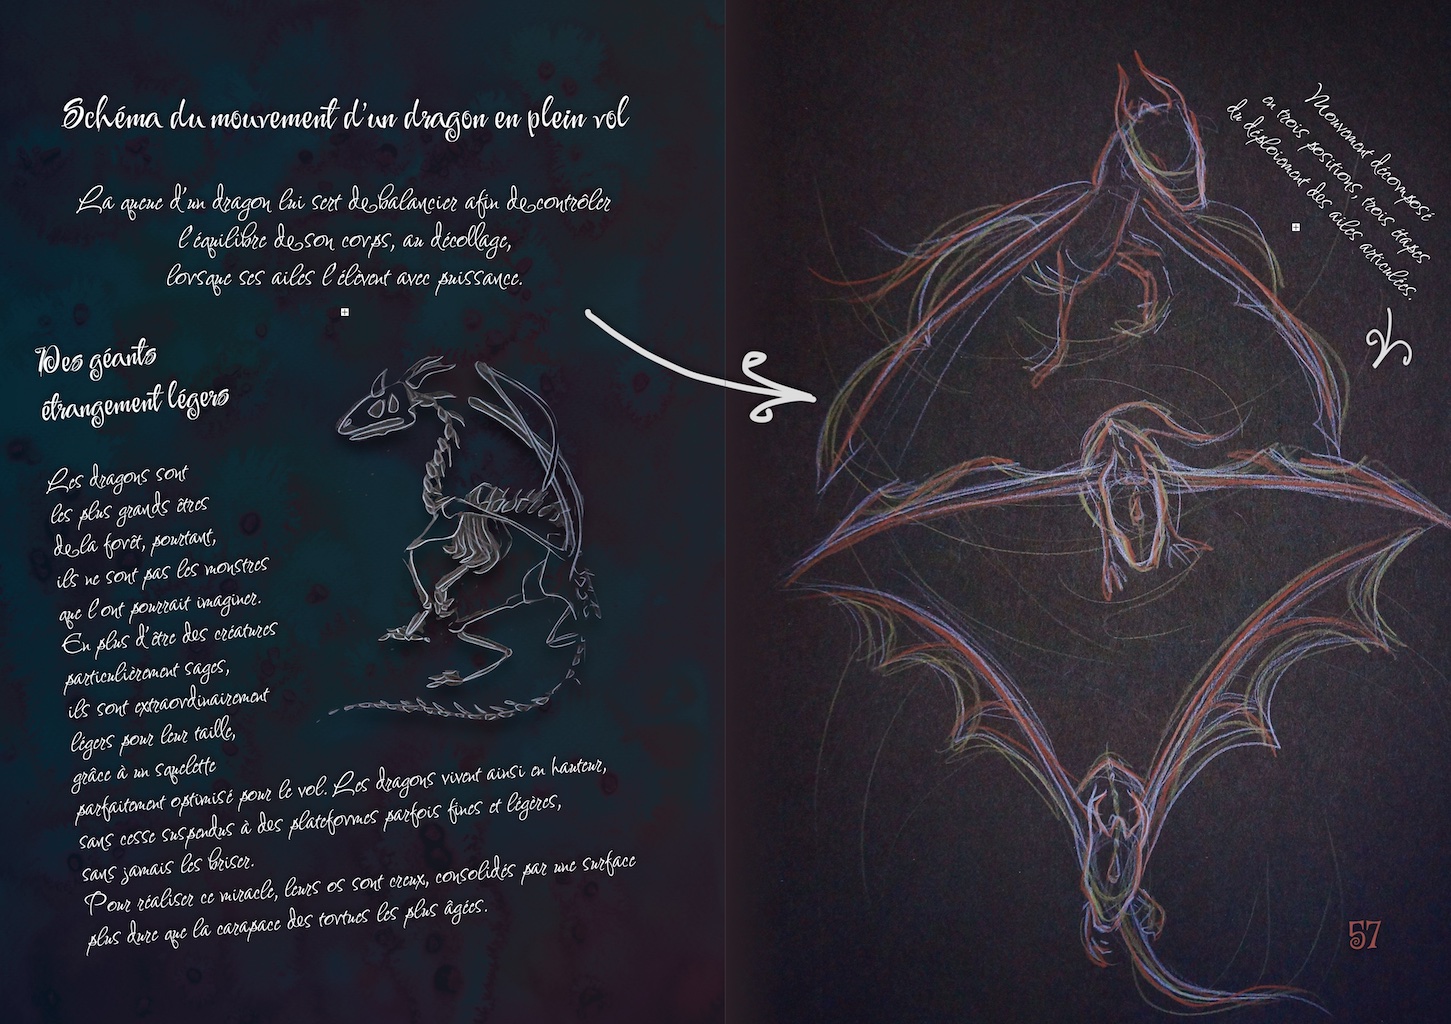 Schéma du mouvement d'un dragon en plein vol
La queue d'un dragon lui sert de balancier afin de contrôler
l'équilibre de son corps, au décollage,
lorsque ses ailes l'élèvent avec puissance.
Des géants
étrangement légers
Les dragons sont
les plus grands êtres
de la forêt, pourtant,
ils ne sont pas les monstres
que l'ont pourrait imaginer.
En plus d'être des créatures
particulièrement sages,
ils sont extraordinairement
légers pour leur taille,
grâce à un squelette
parfaitement optimisé pour le vol. Les dragons vivent ainsi en hauteur,
sans cesse suspendus à des plateformes parfois fines et légères,
sans jamais les briser.
Pour réaliser ce miracle, leurs os sont creux, consolidés par une surface
plus dure que la carapace des tortues les plus âgées.
Mouvement décomposé
en trois positions, trois étapes
du déploiement des ailes articulées.
57